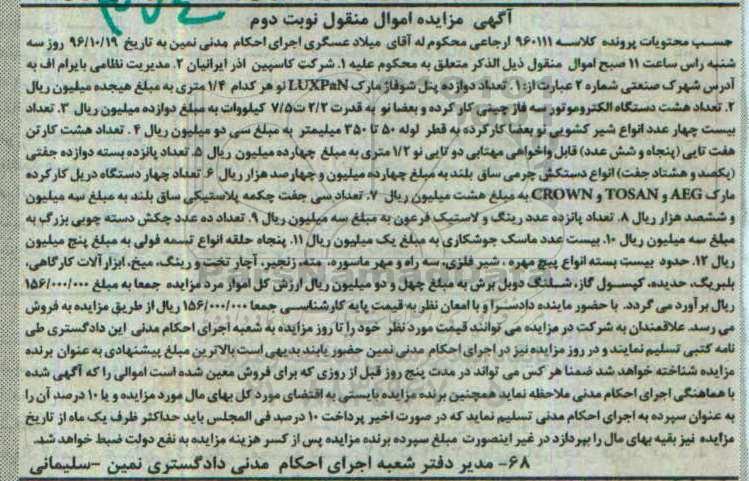 آگهی مزایده اموال منقول نوبت دوم
حسب محتویات پرونده کلاسه ۹۶۰۱۱۱ ارجاعی محکوم له آقای میلاد عسگری اجرای احکام مدنی نمین به تاریخ ۹۶/۱۰/۱۹ روز سه
شنبه راس ساعت ۱۱ صبح اموال منقول ذیل الذکر متعلق به محکوم علیه ۱. شرکت کاسپین اذر ایرانیان ۲. مدیریت نظامی بایرام اف به
آدرس شهرک صنعتی شماره ۲ عبارت از: ۱. تعداد دوازده پنل شوفاژ مارک LUXPaN نو هر کدام ۱/۴ متری به مبلغ هیجده میلیون ریال
۲. تعداد هشت دستگاه الکتروموتور سه فاز چینی کار کرده و بعضا نو به قدرت ۲/۲ ت ۷/۵ کیلووات به مبلغ دوازده میلیون ریال ۳. تعداد
بیست چهار عدد انواع شیر کشویی نو بعضا کارکرده به قطر لوله ۵۰ تا ۳۵۰ میلیمتر به مبلغ سی دو میلیون ریال ۴. تعداد هشت کارتن
هفت تایی (پنجاه و شش عدد) قابل واخواهی مهتابی دو تایی نو ۱/۲ متری به مبلغ چهارده میلیون ریال ۵. تعداد پانزده بسته دوازده جفتی
(یکصد و هشتاد جفت) انواع دستکش چرمی ساق بلند به مبلغ چهارده میلیون و چهارصد هزار ریال ۶. تعداد چهار دستگاه دریل کارکرده
مارک AEG و TOSAN و CROWN به مبلغ هشت میلیون ریال ۷. تعداد سی جفت چکمه پلاستیکی ساق بلند به مبلغ سه میلیون
و ششصد هزار ریال ۸. تعداد پانزده عدد رینگ و لاستیک فرعون به مبلغ سه میلیون ریال ۹. تعداد ده عدد چکش دسته چوبی بزرگ به
مبلغ سه میلیون ریال ۱۰. بیست عدد ماسک جوشکاری به مبلغ یک میلیون ریال ۱۱. پنجاه حلقه انواع تسمه فولی به مبلغ پنج میلیون
ریال ۱۲. حدود بیست بسته انواع پیچ مهره ، شیر فلزی، سه راه و مهر ماسوره، مته، زنجیر، آچار تخت و رینگ، میخ، ابزار آلات کارگاهی،
بلبرینگ، حدیده، کپسول گاز، شلنگ دوبل برش به مبلغ چهل و دو میلیون ریال ارزش کل اموار مرد مزایده جمعا به مبلغ ۱۵۶/۰۰۰/۰۰۰
ریال بر آورد می گردد با حضور ماینده دادسرا و با امعان نظر به قیمت پایه کارشناسی جمعا ۱۵۶/۰۰۰/۰۰۰ ریال از طریق مزایده به فروش
می رسد. علاقمندان به شرکت در مزایده می توانند قیمت مورد نظر خود را تا روز مزایده به شعبه اجرای احکام مدنی این دادگستری طی
نامه کتبی تسلیم نمایند و در روز مزایده نیز در اجرای احکام مدنی نمین حضور یابند بدیهی است بالاترین مبلغ پیشنهادی به عنوان برنده
مزایده شناخته خواهد شد ضمنا هر کس می تواند در مدت پنج روز قبل از روزی که برای فروش معین شده است اموالی را که آگهی شده
با هماهنگی اجرای احکام مدنی ملاحظه نماید همچنین برنده مزایده بایستی به اقتضای مورد کل بهای مال مورد مزایده و یا ۱۰ درصد آن را
به عنوان سپرده به اجرای احکام مدنی تسلیم نماید که در صورت اخیر پرداخت ۱۰ درصد فی المجلس باید حداکثر ظرف یک ماه از تاریخ
مزایده نیز بقیه بهای مال را بپردازد در غیر اینصورت مبلغ سپرده برنده مزایده پس از کسر هزینه مزایده به نفع دولت ضبط خواهد شد.
۶۸- مدیر دفتر شعبه اجرای احکام مدنی دادگستری نمین -سلیمانی